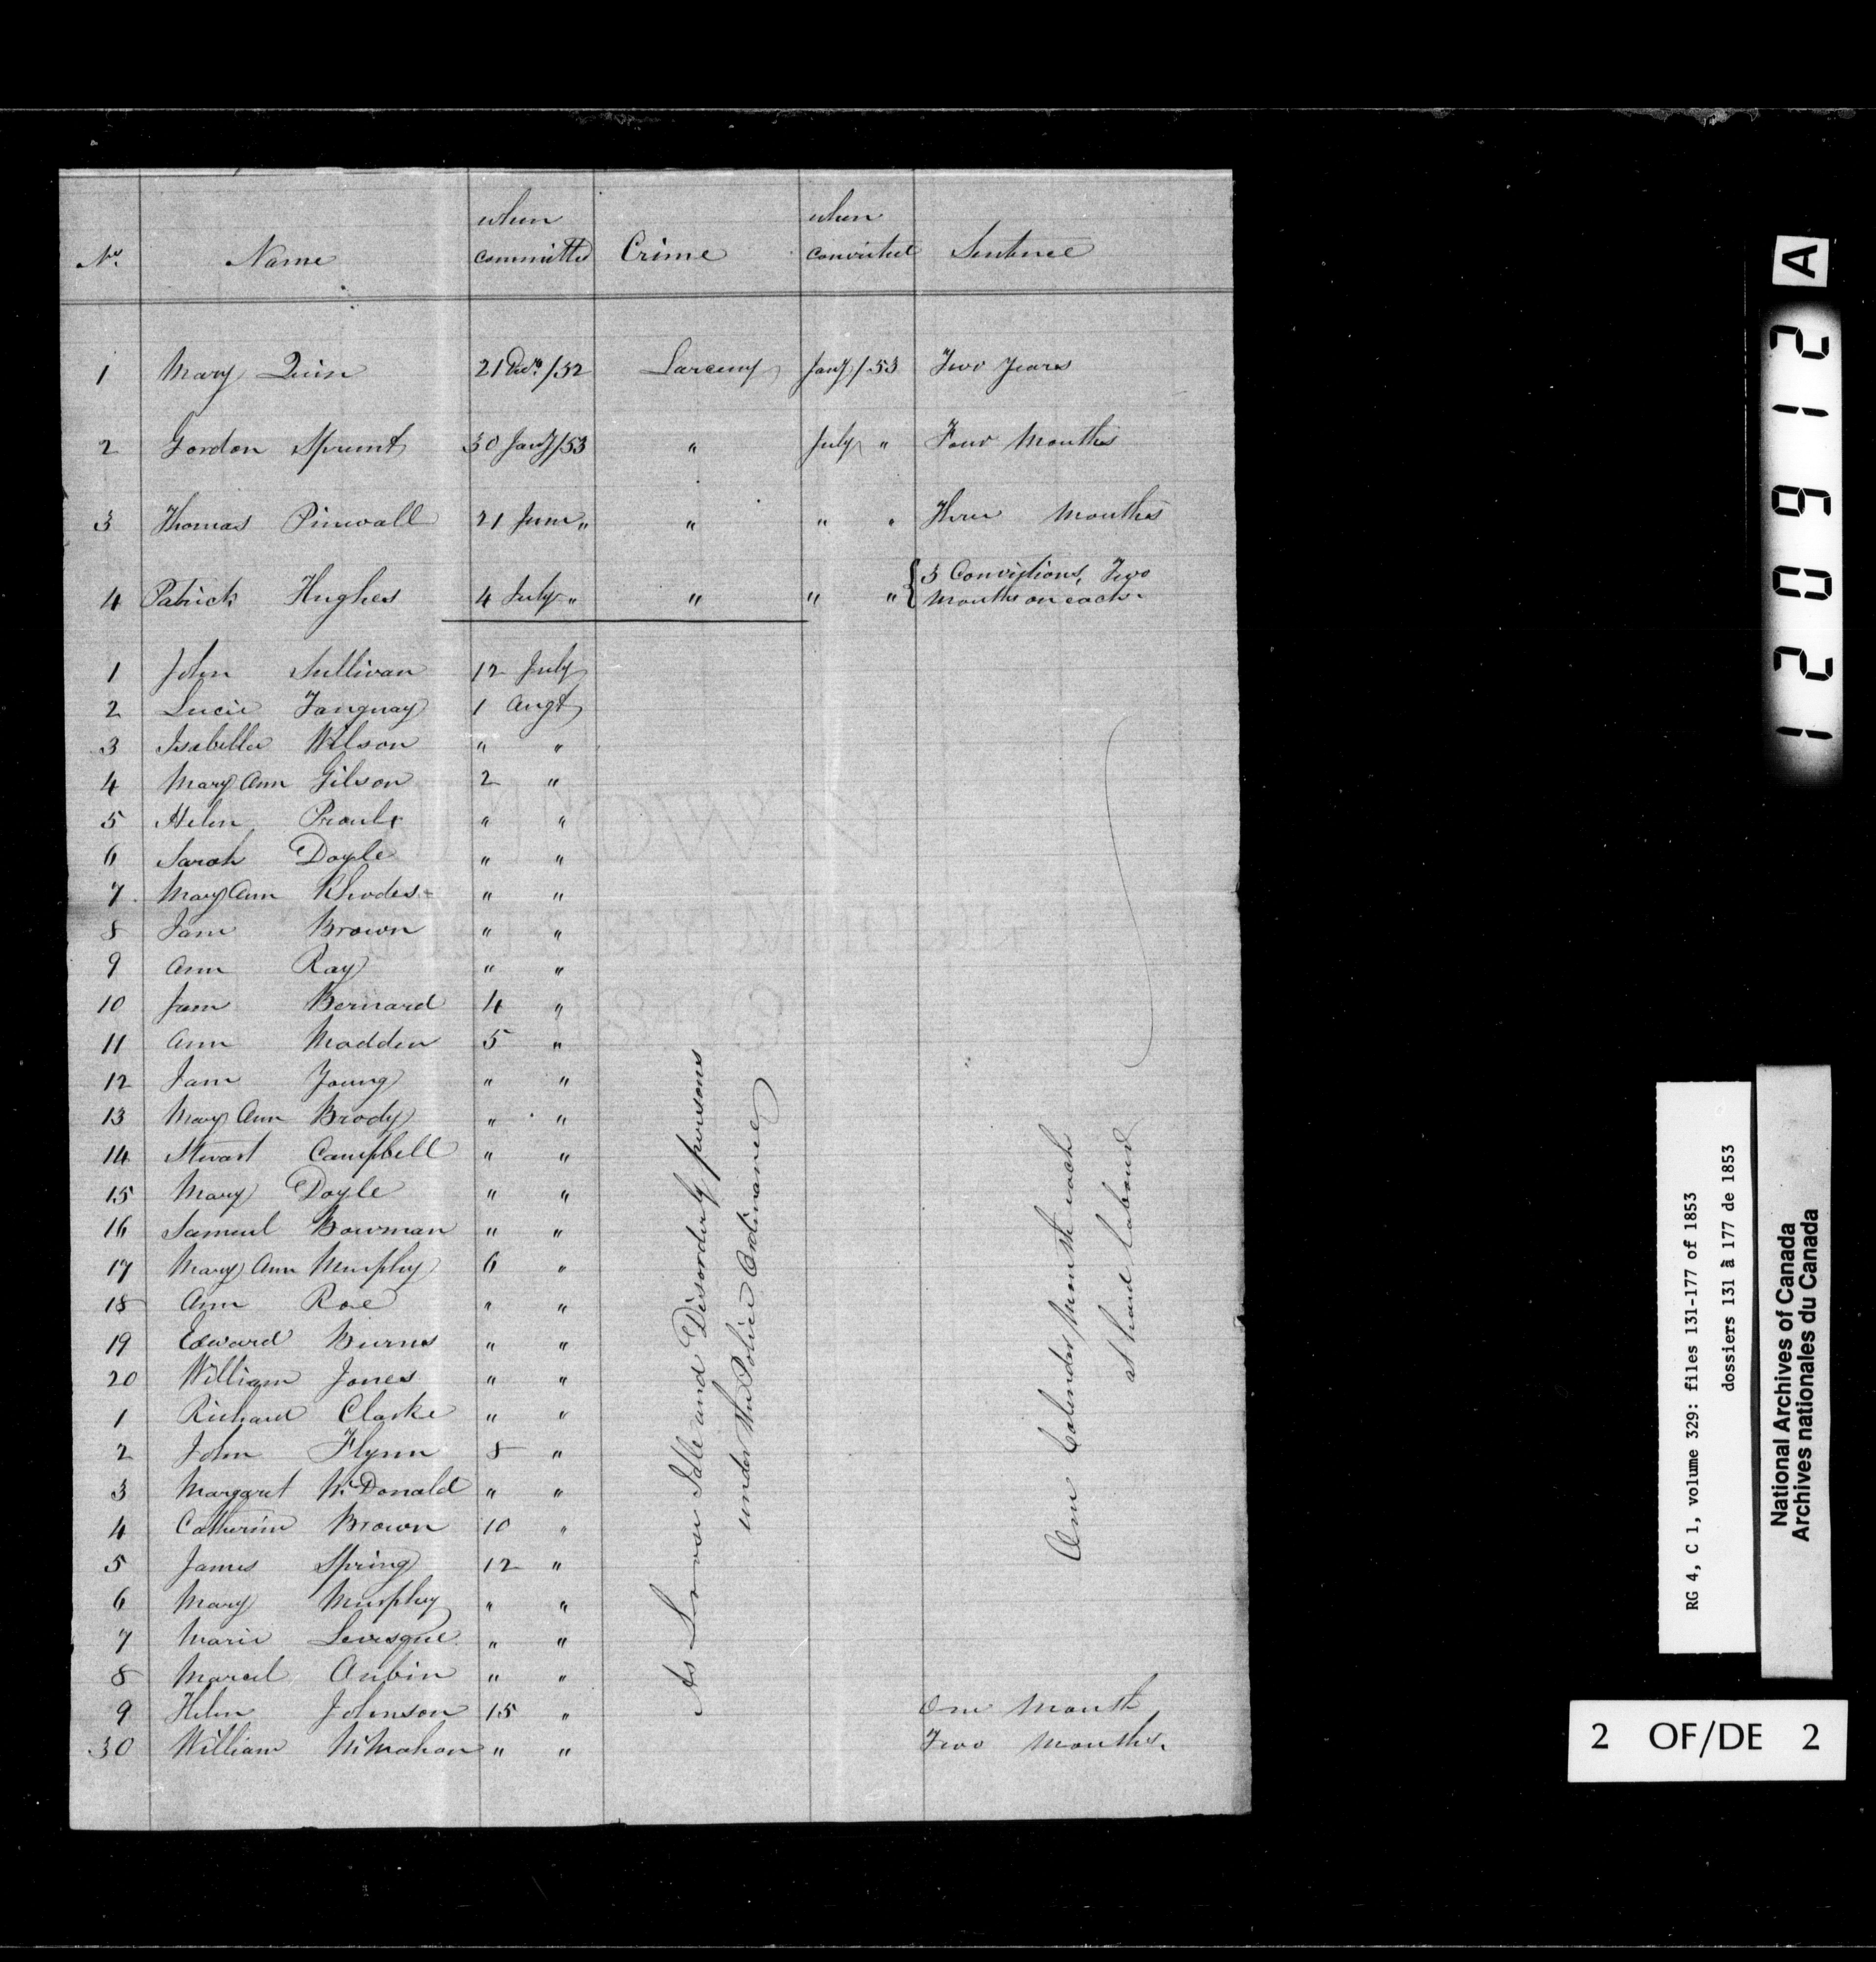 No. Name when committed Crime when convicted Sentence
1 Mary Quin 21 Decr. /52 Larceny Jany /53 Two Years
2 Gordon Sprunt 30 Jany /53 " July " Four Months
3 Thomas Pinwall 21 June " " " " Three Months
4 Patrick Hughes 4 July " " " " { 3 Convictions, Two
Months on each.
1 John Sullivan 12 July
2 Lucie Tanguay 1 Augt
3 Isabella Wilson " "
4 Mary Ann Gilson 2 "
5 Helen Proulx " "
6 Sarah Doyle " "
7 Mary Ann Rhodes " "
8 Jane Brown " "
9 Ann Ray " "
10 Jane Bernard 4 "
11 Ann Madden 5 "
12 Jane Young " "
13 Mary Ann Brody " "
14 Stewart Campbell " "
15 Mary Doyle " "
16 Samuel Bowman " "
17 Mary Ann Murphy 6 "
18 Ann Roe " "
19 Edward Burns " "
20 William Jones " "
1 Richard Clarke " "
2 John Flynn 8 "
3 Margaret McDonald " "
4 Catherine Brown 10 "
5 James Spring 12 "
6 Mary Murphy " "
7 Marie Levesque " "
8 Marcel Aubin " "
9 Helen Johnson 15 " One Month
30 William McMahon " " Two Months.
As Loose Idle and Disorderly persons
under the Police Ordinance
One Calender Month each
at hard labour
12 0912 A
RG 4, C 1, volume 329: files 131-177 of 1853
dossiers 131 à 177 de 1853
National Archives of Canada
Archives nationales du Canada
2 OF/DE 2